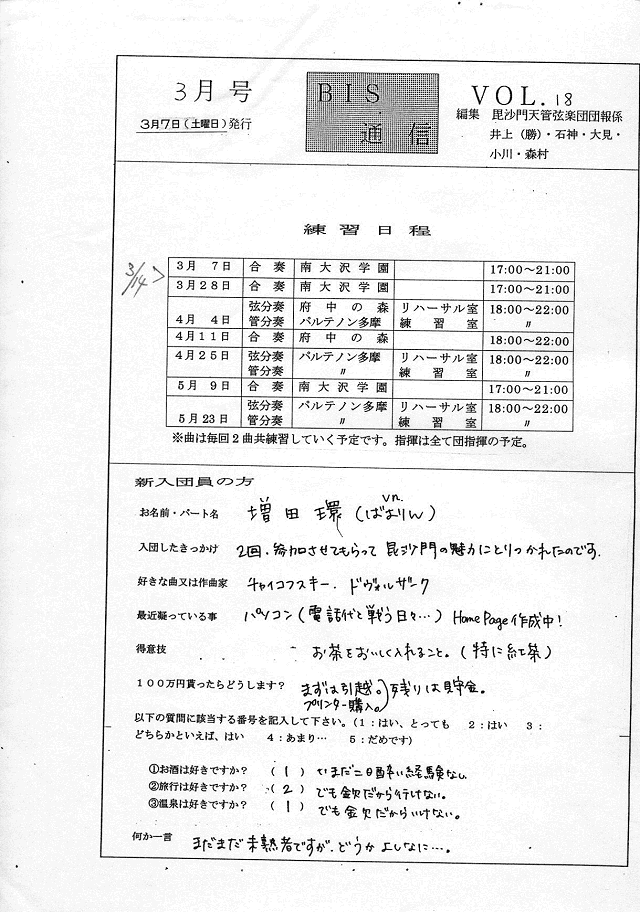 3月号
3月7日(土曜日)発行
BIS
通信
VOL.18
編集 毘沙門天管弦楽団団報係
井上(勝)・石神・大見・
小川・森村
練習日程
3/14>
3月 7日 合奏 南大沢学園 17:00〜21:00
3月28日 合奏 南大沢学園 17:00〜21:00
弦分奏 府中の森 リハーサル室 18:00〜22:00
4月 4日 管分奏 パルテノン多摩 練習室 〃
4月11日 合奏 府中の森 18:00〜22:00
4月25日 弦分奏 パルテノン多摩 リハーサル室 18:00〜22:00
管分奏 〃 練習室 〃
5月 9日 合奏 南大沢学園 17:00〜21:00
弦分奏 パルテノン多摩 リハーサル室 18:00〜22:00
5月23日 管分奏 〃 練習室 〃
※曲は毎回2曲共練習していく予定です。指揮は全て団指揮の予定。
新入団員の方
お名前・パート名 増田 環 (ばよりん) vn.
入団したきっかけ 2回、参加させてもらって毘沙門の魅力にとりつかれたのです。
好きな曲又は作曲家 チャイコフスキー、ドヴォルザーク
最近凝っている事 パソコン(電話代と戦う日々…) HomePage作成中!
得意技 お茶をおいしく入れること。(特に紅茶)
100万円貰ったらどうします? まずは引越。 残りは貯金。
プリンター購入。
以下の質問に該当する番号を記入して下さい。(1:はい、とっても 2:はい 3:
どちらかといえば、はい 4:あまり… 5:だめです)
①お酒は好きですか? (1) いまだ二日酔い経験なし
②旅行は好きですか? (2) でも金欠だから行けない。
③温泉は好きですか? (1) でも金欠だからいけない。
何か一言 まだまだ未熟者ですが、どうかよしなに…。